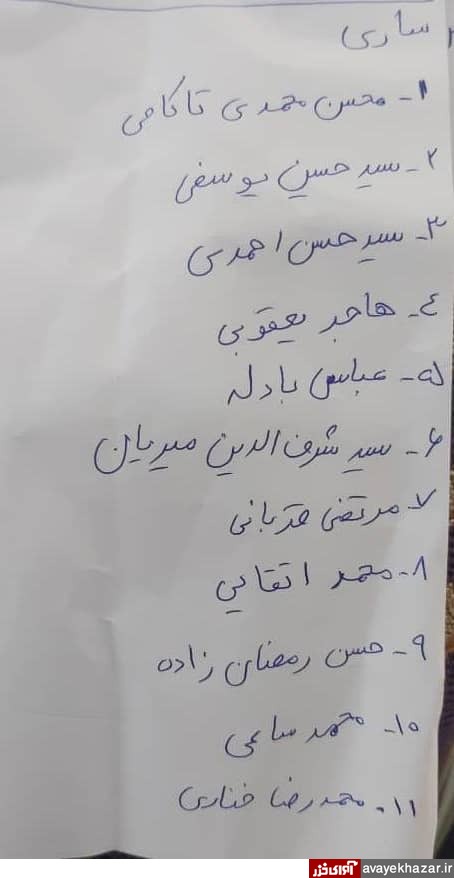 ساری
۱- محسن محمدی تاکامی
۲- سید حسین یوسفی
۳- سید حسن احمدی
٤- هاجر یعقوبی
۵- عباس بادله
۶- سید شرف الدین میریان
۷ مرتضی قربانی
۸- محمد اتقایی
۹- حسن رمضان زاده
۱۰- محمد ساعی
۱۱- محمدرضا خناری
آوای خزر avayekhazar.ir